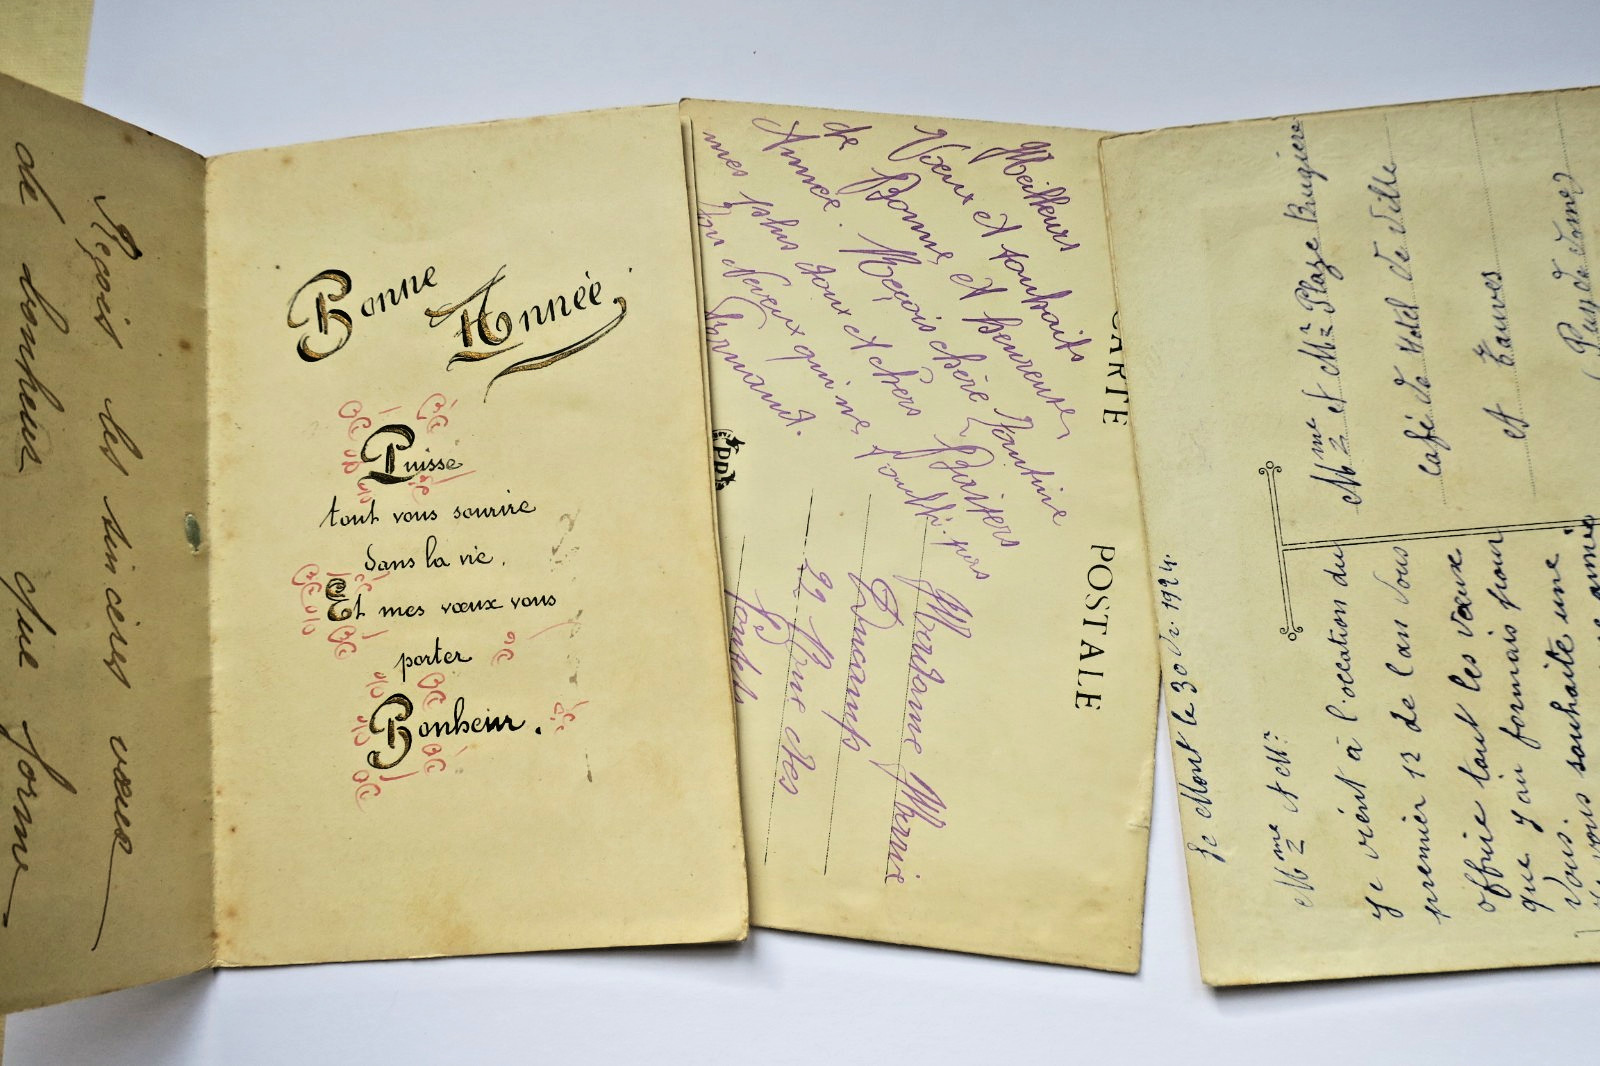 Reçois les sincères vœux
de bonheur que forme
Bonne
Année
Puisse
tout vous sourire
dans la vie.
Et mes vœux vous
porter
Bonheur.
CARTE POSTALE
Meilleurs
Vœux et souhaits
de Bonne et heureuse
Année. Reçois chère Tantine
mes plus doux et chers Baisers
Ton Neveux qui ne
Armand.
Madame
29 Rue des
Le Mont le 30 1924.
Mme et Mr Plaze Brugiere
Café de l'Hotel de Ville
et Tauves
(Puy de dome)
Mme et Mr
Je vient à l'occation du
premier 12 de l'an vous
offrir tout les vœux
que j'ai formais pour
vous. souhaite une